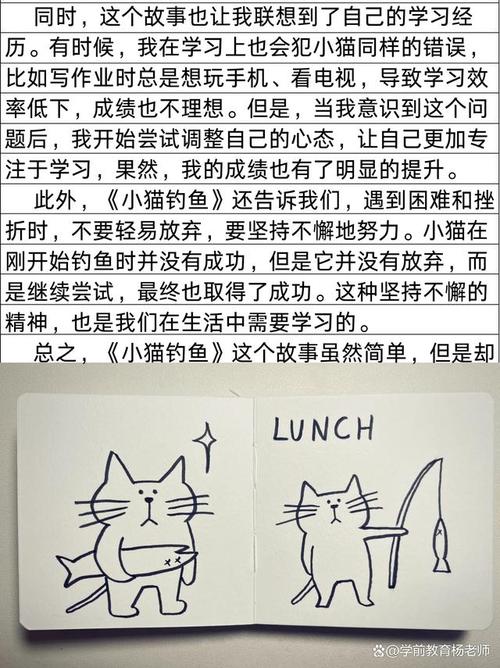 同时，这个故事也让我联想到了自己的学习经
历。有时候，我在学习上也会犯小猫同样的错误，
比如写作业时总是想玩手机、看电视，导致学习效
率低下，成绩也不理想。但是，当我意识到这个问
题后，我开始尝试调整自己的心态，让自己更加专
注于学习，果然，我的成绩也有了明显的提升。
此外，《小猫钓鱼》还告诉我们，遇到困难和挫
折时，不要轻易放弃，要坚持不懈地努力。小猫在
刚开始钓鱼时并没有成功，但是它并没有放弃，而
是继续尝试，最终也取得了成功。这种坚持不懈的
精神，也是我们在生活中需要学习的。
总之，《小猫钓鱼》这个故事虽然简单，但是却
LUNCH
@学前教育杨老师